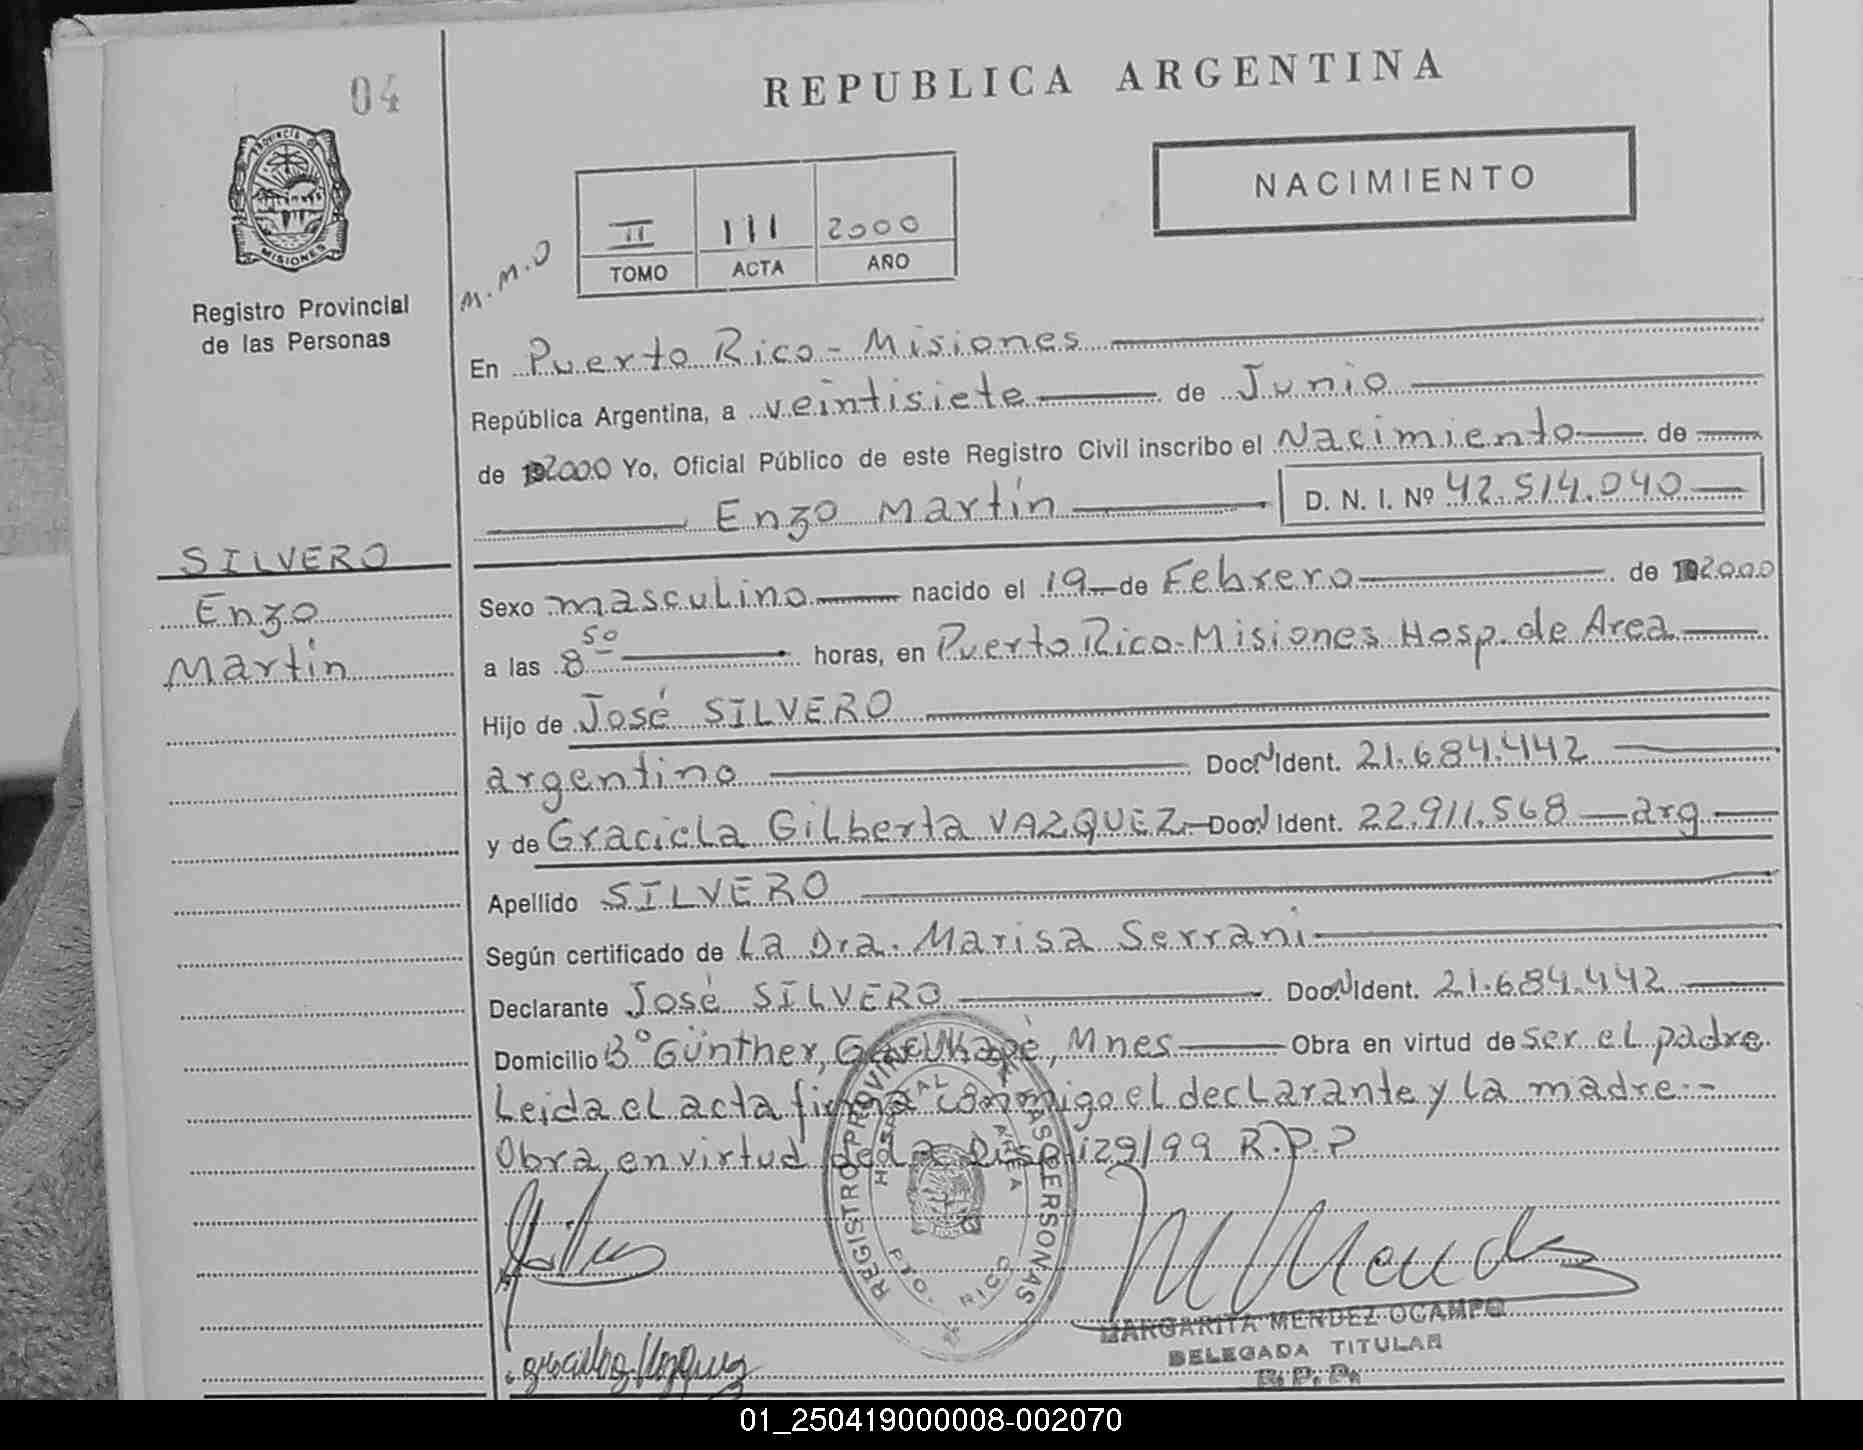 04
REPUBLICA ARGENTINA
PROVINCIA D
MISIONES
Registro Provincial
de las Personas
NACIMIENTO
II 111 2000
TOMO ACTA AÑO
M.M.O
En Puerto Rico - Misiones
República Argentina, a veintisiete de Junio
de 2000 Yo, Oficial Público de este Registro Civil inscribo el Nacimiento de
Enzo Martín D. N. I. Nº 42.514.040
SILVERO
Enzo
Martín
Sexo masculino nacido el 19 de Febrero de 2000
a las 8 50 horas, en Puerto Rico - Misiones Hosp. de Area
Hijo de José SILVERO
argentino Doc. N Ident. 21.684.442
y de Graciela Gilberta VAZQUEZ Doc. N Ident. 22.911.568 arg
Apellido SILVERO
Según certificado de La Dra. Marisa Serrani
Declarante José SILVERO Doc. N Ident. 21.684.442
Domicilio Bº Günther, Garuhapé, Mnes Obra en virtud de ser el padre
Leida el acta firma conmigo el declarante y la madre.-
Obra en virtud de la Disp. 129/99 R.P.P
REGISTRO PROVINCIAL DE LAS PERSONAS
HOSPITAL AREA
PTO. RICO
M Mendez
MARGARITA MENDEZ OCAMPO
DELEGADA TITULAR
R. P. P.
Graciela Vazquez
01_250419000008-002070